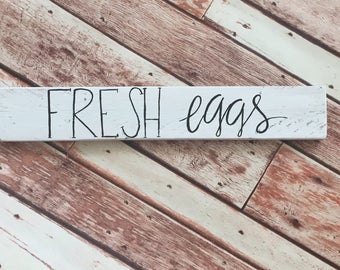 FRESH eggs